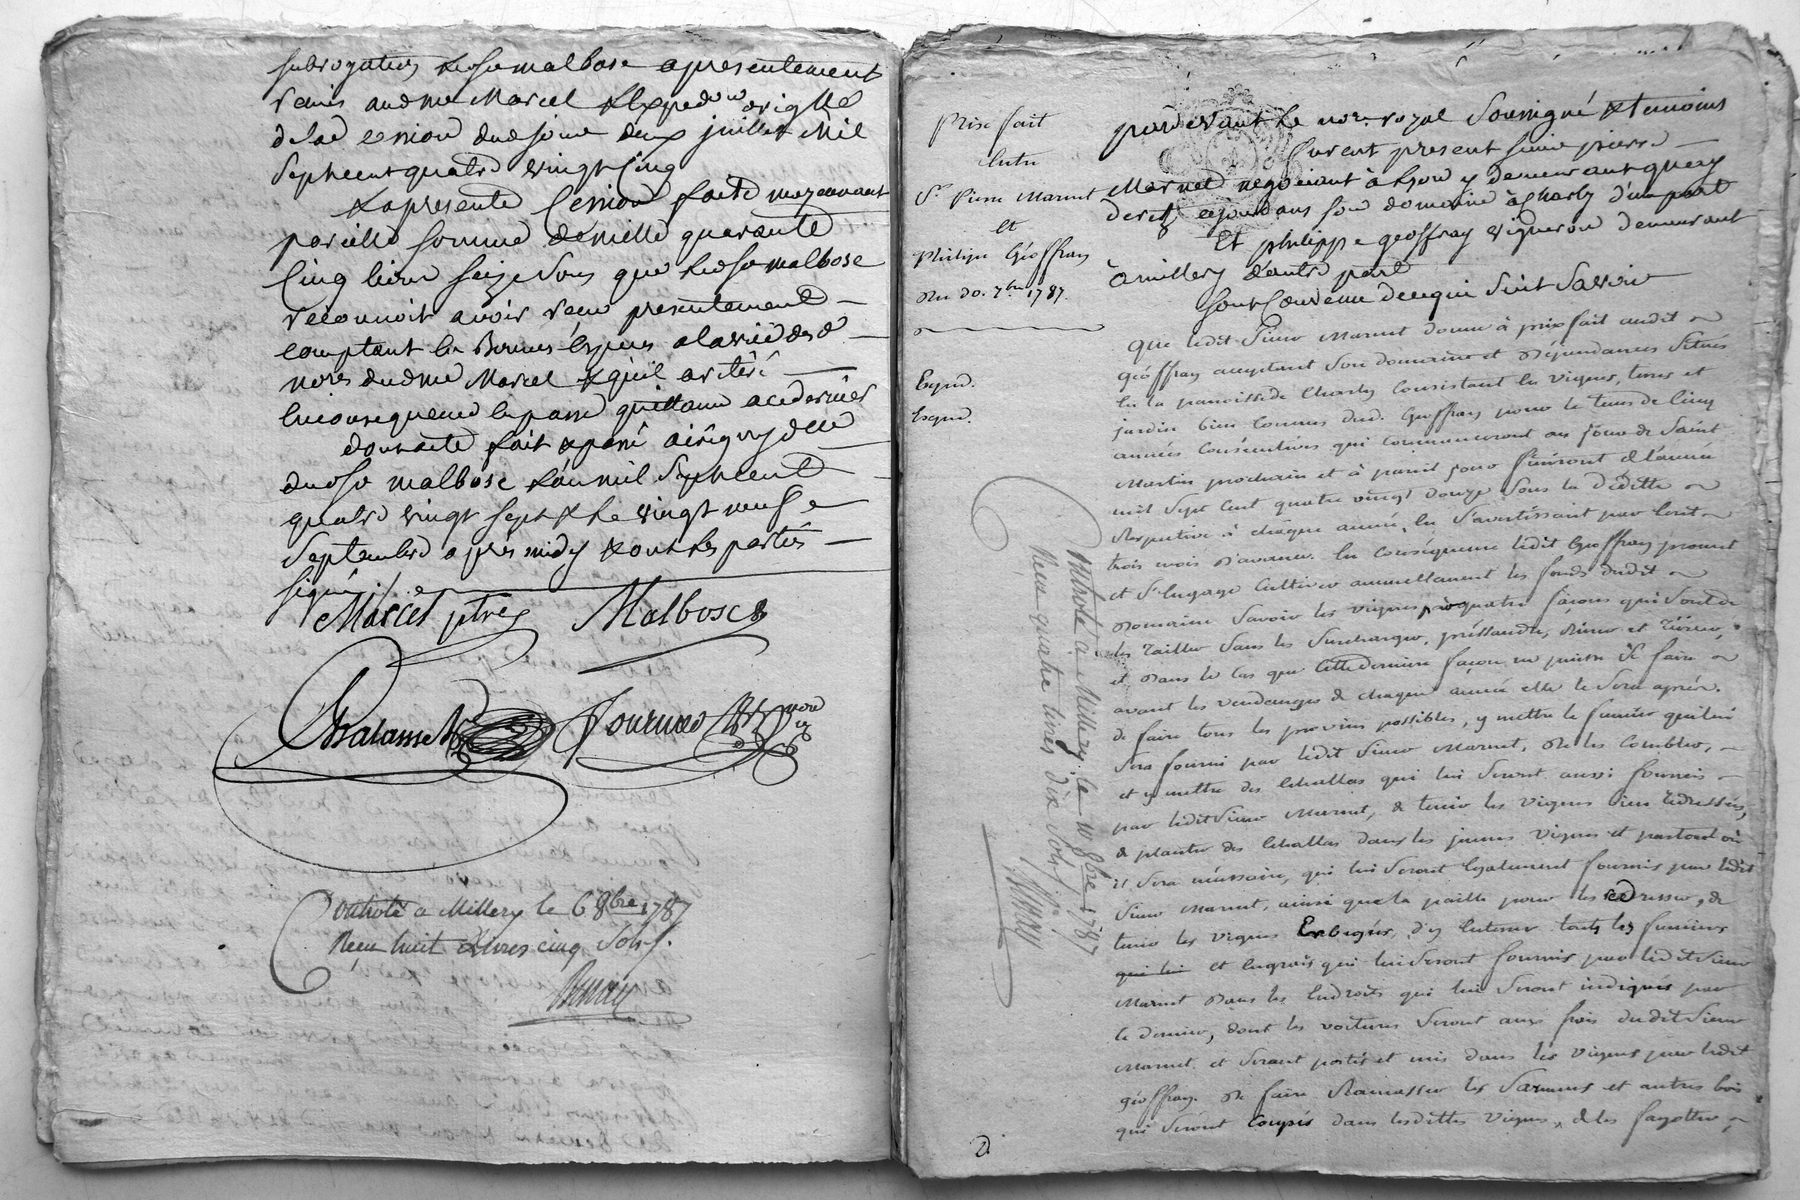 subrogation ledsr malbose a presentement
remis audme Marcel
de la cession dud jour deux juillet mil
sept cent quatre vingt cinq
la presente cession faite moyennant
pareille somme de mille quarante
cinq livre seize sous que ledsr malbose
reconnoit avoir recu presentement
comptant en Bonnes especes a la vue des d
nores dudme Marcel & quil a retiré
en consequence en passe quittance a ce dernier
dont acte fait & passé
dudsr malbose l'an mil sept cent
quatre vingt sept & le vingt neuf
septembre apres midy & ont les parties
signé
Marcel ptre Malbosc
Chalamel Fournereau
Controlé a Millery le 6 8bre 1787
Recu huit Livres cinq Sols
Prix fait
Entre
Sr Pierre Marmet
et
Philipe Géoffray
du 30. 7bre 1787.
Expd.
Expd.
Controlé a Millery le 10 8bre 1787
Recu quatre livres dix Sols
pardevant le nore royal Soussigné & temoins
furent present sieur pierre
Marmet negociant à Lyon y demeurant quay
de retz etant dans son domaine à Charly d'une part
Et philippe geoffray vigneron demeurant
à millery d'autre part
sont Convenu de ce qui Suit Savoir
Que ledit Sieur Marmet donne à prix fait audit
Géoffray acceptant Son domaine et dépendances Situés
en la paroisse de Charly Consistant en vignes, terres et
jardin bien connus dud. Geoffray pour le tems de Cinq
années Consécutives qui commenceront au jour de Saint
Martin prochain et à pareil jour finiront de l'année
mil Sept Cent quatre vingt douze Sous la déditte
Respective à chaque année, en S'avertissant par écrit
trois mois d'avance. En conséquence ledit Geoffray promet
et S'engage Cultiver annuellement les fonds dudit
Domaine Savoir les vignes quatre façons qui Sont de
les Tailler Sans les Surcharger, biner et Tiercer,
et dans le Cas que Cette derniere façon ne puisse se faire
avant les vendanges de chaque année elle le Sera après.
de faire tous les provins possibles, y mettre le fumier qui lui
Sera fourni par ledit Sieur Marmet, de les Combler,
et y mettre des échallas qui lui Seront aussi fournis
par ledit Sieur Marmet, de tenir les vignes bien redressées,
de planter des échallas dans les jeunes vignes et partout où
il Sera nécessaire, qui lui Seront également fournis par ledit
Sieur Marmet, ainsi que la paille pour les redresser, de
tenir les vignes d'y Enterrer touts les fumiers
qui lui et engrais qui lui Seront fournis par ledit Sieur
Marmet dans les Endroits qui lui Seront indiqués par
ce dernier, dont les voitures Seront aux frais dudit Sieur
Marmet et Seront portés et mis dans les vignes par ledit
géoffray. de faire Ramasser les Sarmens et autres bois
qui Seront Coupés dans lesdittes vignes, de les fagotter,